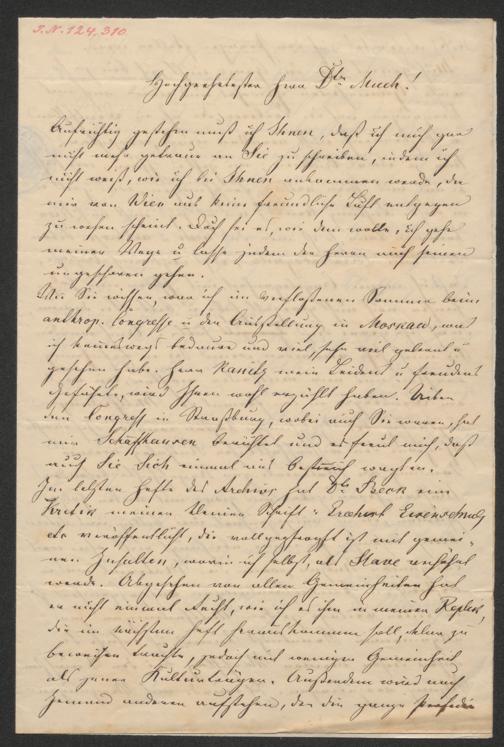 J.N. 124,310
Hochgeehrtester Herr Dr Much!
Aufrichtig gestehn muß ich Ihnen, daß ich mich gar
nicht mehr getraue an Sie zu schreiben, indem ich
nicht weiß, wie ich bei Ihnen ankommen werde, da
mir von Wien aus keine freundliche Luft entgegen
zu wehen scheint. Doch sei es, wie dem wolle, ich gehe
meiner Wege u lasse jedem der Herrn auch seinen
ungeschoren gehen.
Wie Sie wissen, war ich im verflossenen Sommer beim
anthrop. Congresse u der Ausstellung in Moskau, was
ich keineswegs bedaure und viel, sehr viel gelernt u
gesehen habe. Herr Kanitz mein Leidens u Freudens
Gefährte, wird Ihnen wohl erzählt haben. Ueber
den Congress in Straßburg, wobei auch Sie waren, hat
mir Schaffhausen berichtet und es freut mich, daß
auch Sie Sich einmal aus
Im letzten Hefte des Archivs hat Dr Beck eine
Kritik meiner kleinen Schrift: Eisenschmelz
etc veröffentlicht, die vollgepfropft ist mit gemei-
nen Zusätzen, worin ich selbst, als Slave
werde. Abgesehen von allen Gemeinheiten hat
er nicht einmal Recht, wie ich es ihm in meiner Replik,
die im nächsten Heft herauskommen soll, zu
beweisen trachte, jedoch mit weniger Gemeinheit
als jener Kulturträger. Außerdem wird noch
Jemand anderer aufstehen, der die ganze